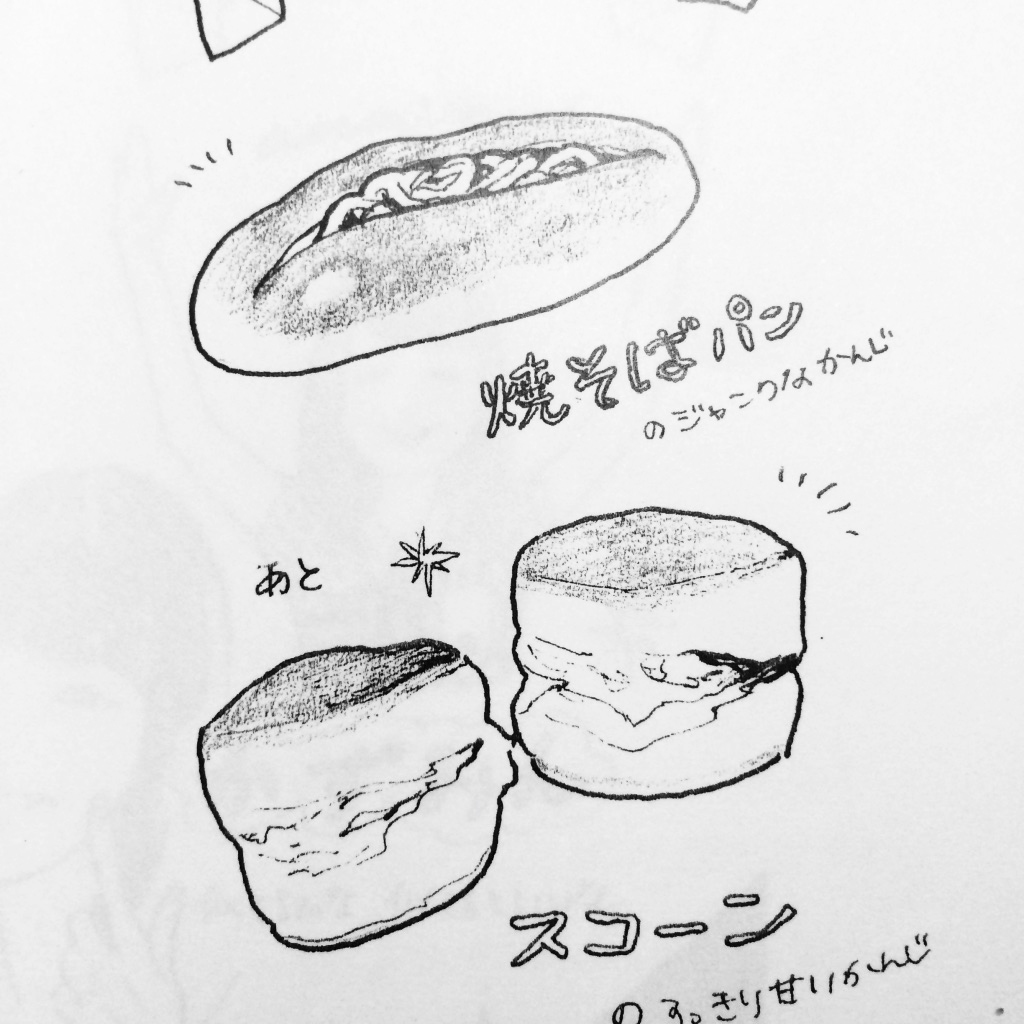 焼そばパン
のジャンクなかんじ
あと
スコーン
のすっきり甘いかんじ